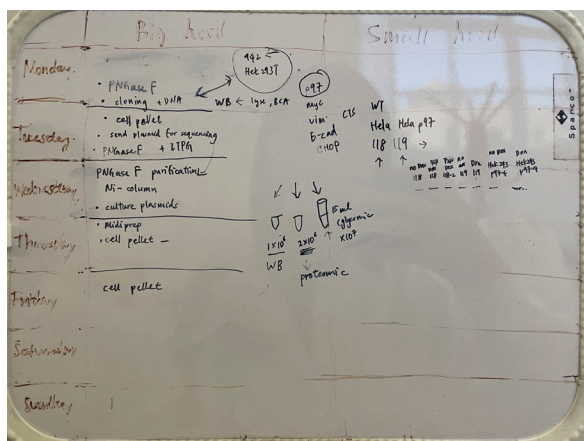 Big hood
Small hood
Monday
Tuesday
Wednesday
Thursday
Friday
Saturday
Sunday
• PNGase F
• cloning + DNA
• cell pellet
• send plasmid for sequencing
• PNGase F + LTPG
PNGase F purification
Ni-column
• culture plasmids
• Midiprep
• cell pellet –
cell pellet
Hek293T
WB ← lyse, BCA
p97
myc
vim.
E-cad
CHOP
CTS
WT
Hela Hela p97
118 119 →
118 118 118-2 119 119 Hek293 p97-4 Hek293 p97-4
1x10⁶ 2x10⁶
x10⁷
WB
proteomic
Spanco